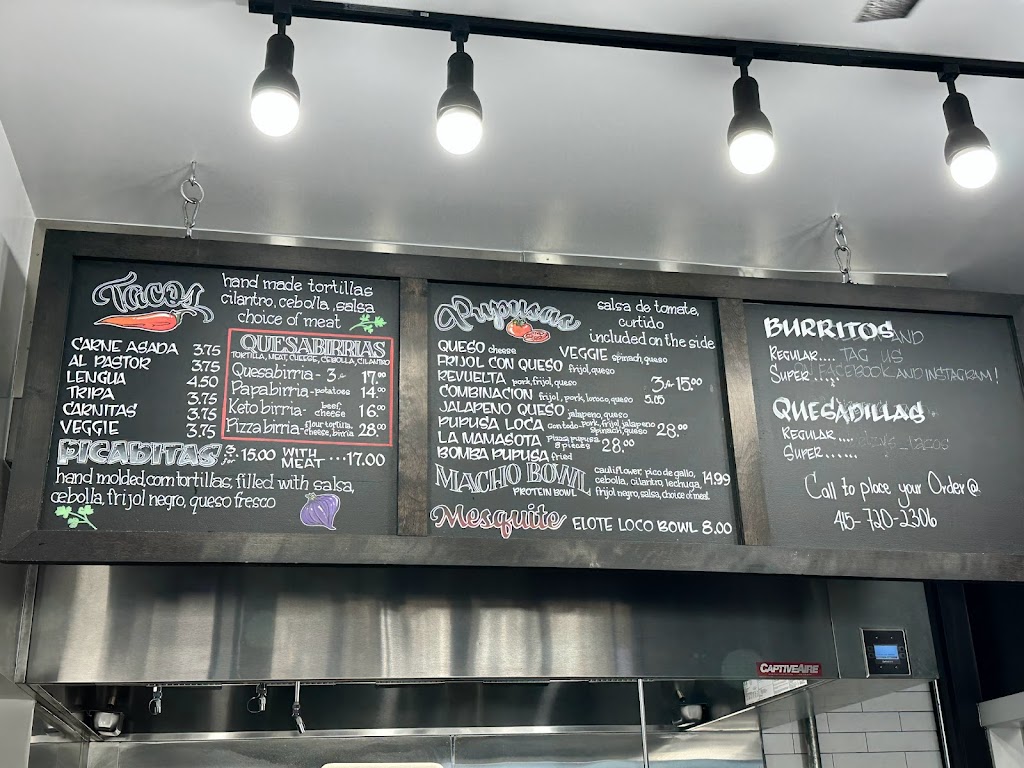 Tacos
hand made tortillas
cilantro, cebolla, salsa
choice of meat
CARNE ASADA 3.75
AL PASTOR 3.75
LENGUA 4.50
TRIPA 3.75
CARNITAS 3.75
VEGGIE 3.75
QUESABIRRIAS
TORTILLA, MEAT, CHEESE, CEBOLLA, CILANTRO
Quesabirria - 3 for 17.00
Papabirria - potatoes 14.00
Keto birria - beef cheese 16.00
Pizza birria - flour tortilla, cheese, birria 28.00
PICADITAS 3 for 15.00 WITH MEAT ... 17.00
hand molded corn tortillas, filled with salsa,
cebolla, frijol negro, queso fresco
Pupusas
salsa de tomate,
curtido
included on the side
QUESO cheese VEGGIE spinach, queso
FRIJOL CON QUESO frijol, queso
REVUELTA pork, frijol, queso 3 for 15.00
COMBINACION frijol, pork, loroco, queso 5.05
JALAPENO QUESO jalapeno, queso
PUPUSA LOCA Con todo - pork, frijol, jalapeno spinach, queso 28.00
LA MAMASOTA pizza pupusa 8 pieces 28.00
BOMBA PUPUSA fried
MACHO BOWL cauliflower, pico de gallo, 14.99
cebolla, cilantro, lechuga,
PROTEIN BOWL frijol negro, salsa, choice of meat
Mesquite ELOTE LOCO BOWL 8.00
BURRITOS AND
REGULAR.... TAG US
SUPER.... FACEBOOK AND INSTAGRAM!
QUESADILLAS
REGULAR....
SUPER...... tacos
Call to place your Order @
415-720-2306
CAPTIVEAIRE